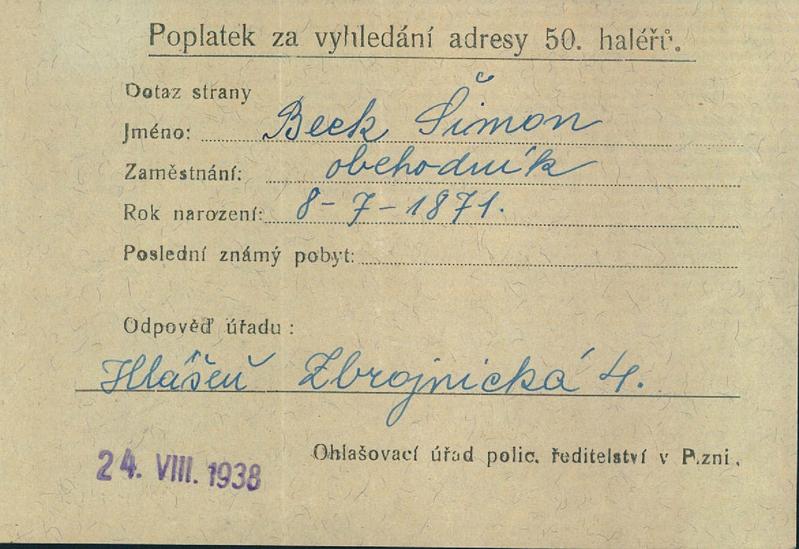 Poplatek za vyhledání adresy 50. haléřů.
Dotaz strany
Jméno: Beck Šimon
Zaměstnání: obchodník
Rok narození: 8-7-1871.
Poslední známý pobyt:
Odpověď úřadu:
Hlášen Zbrojnická 4.
Ohlašovací úřad polic. ředitelství v Plzni.
24. VIII. 1938